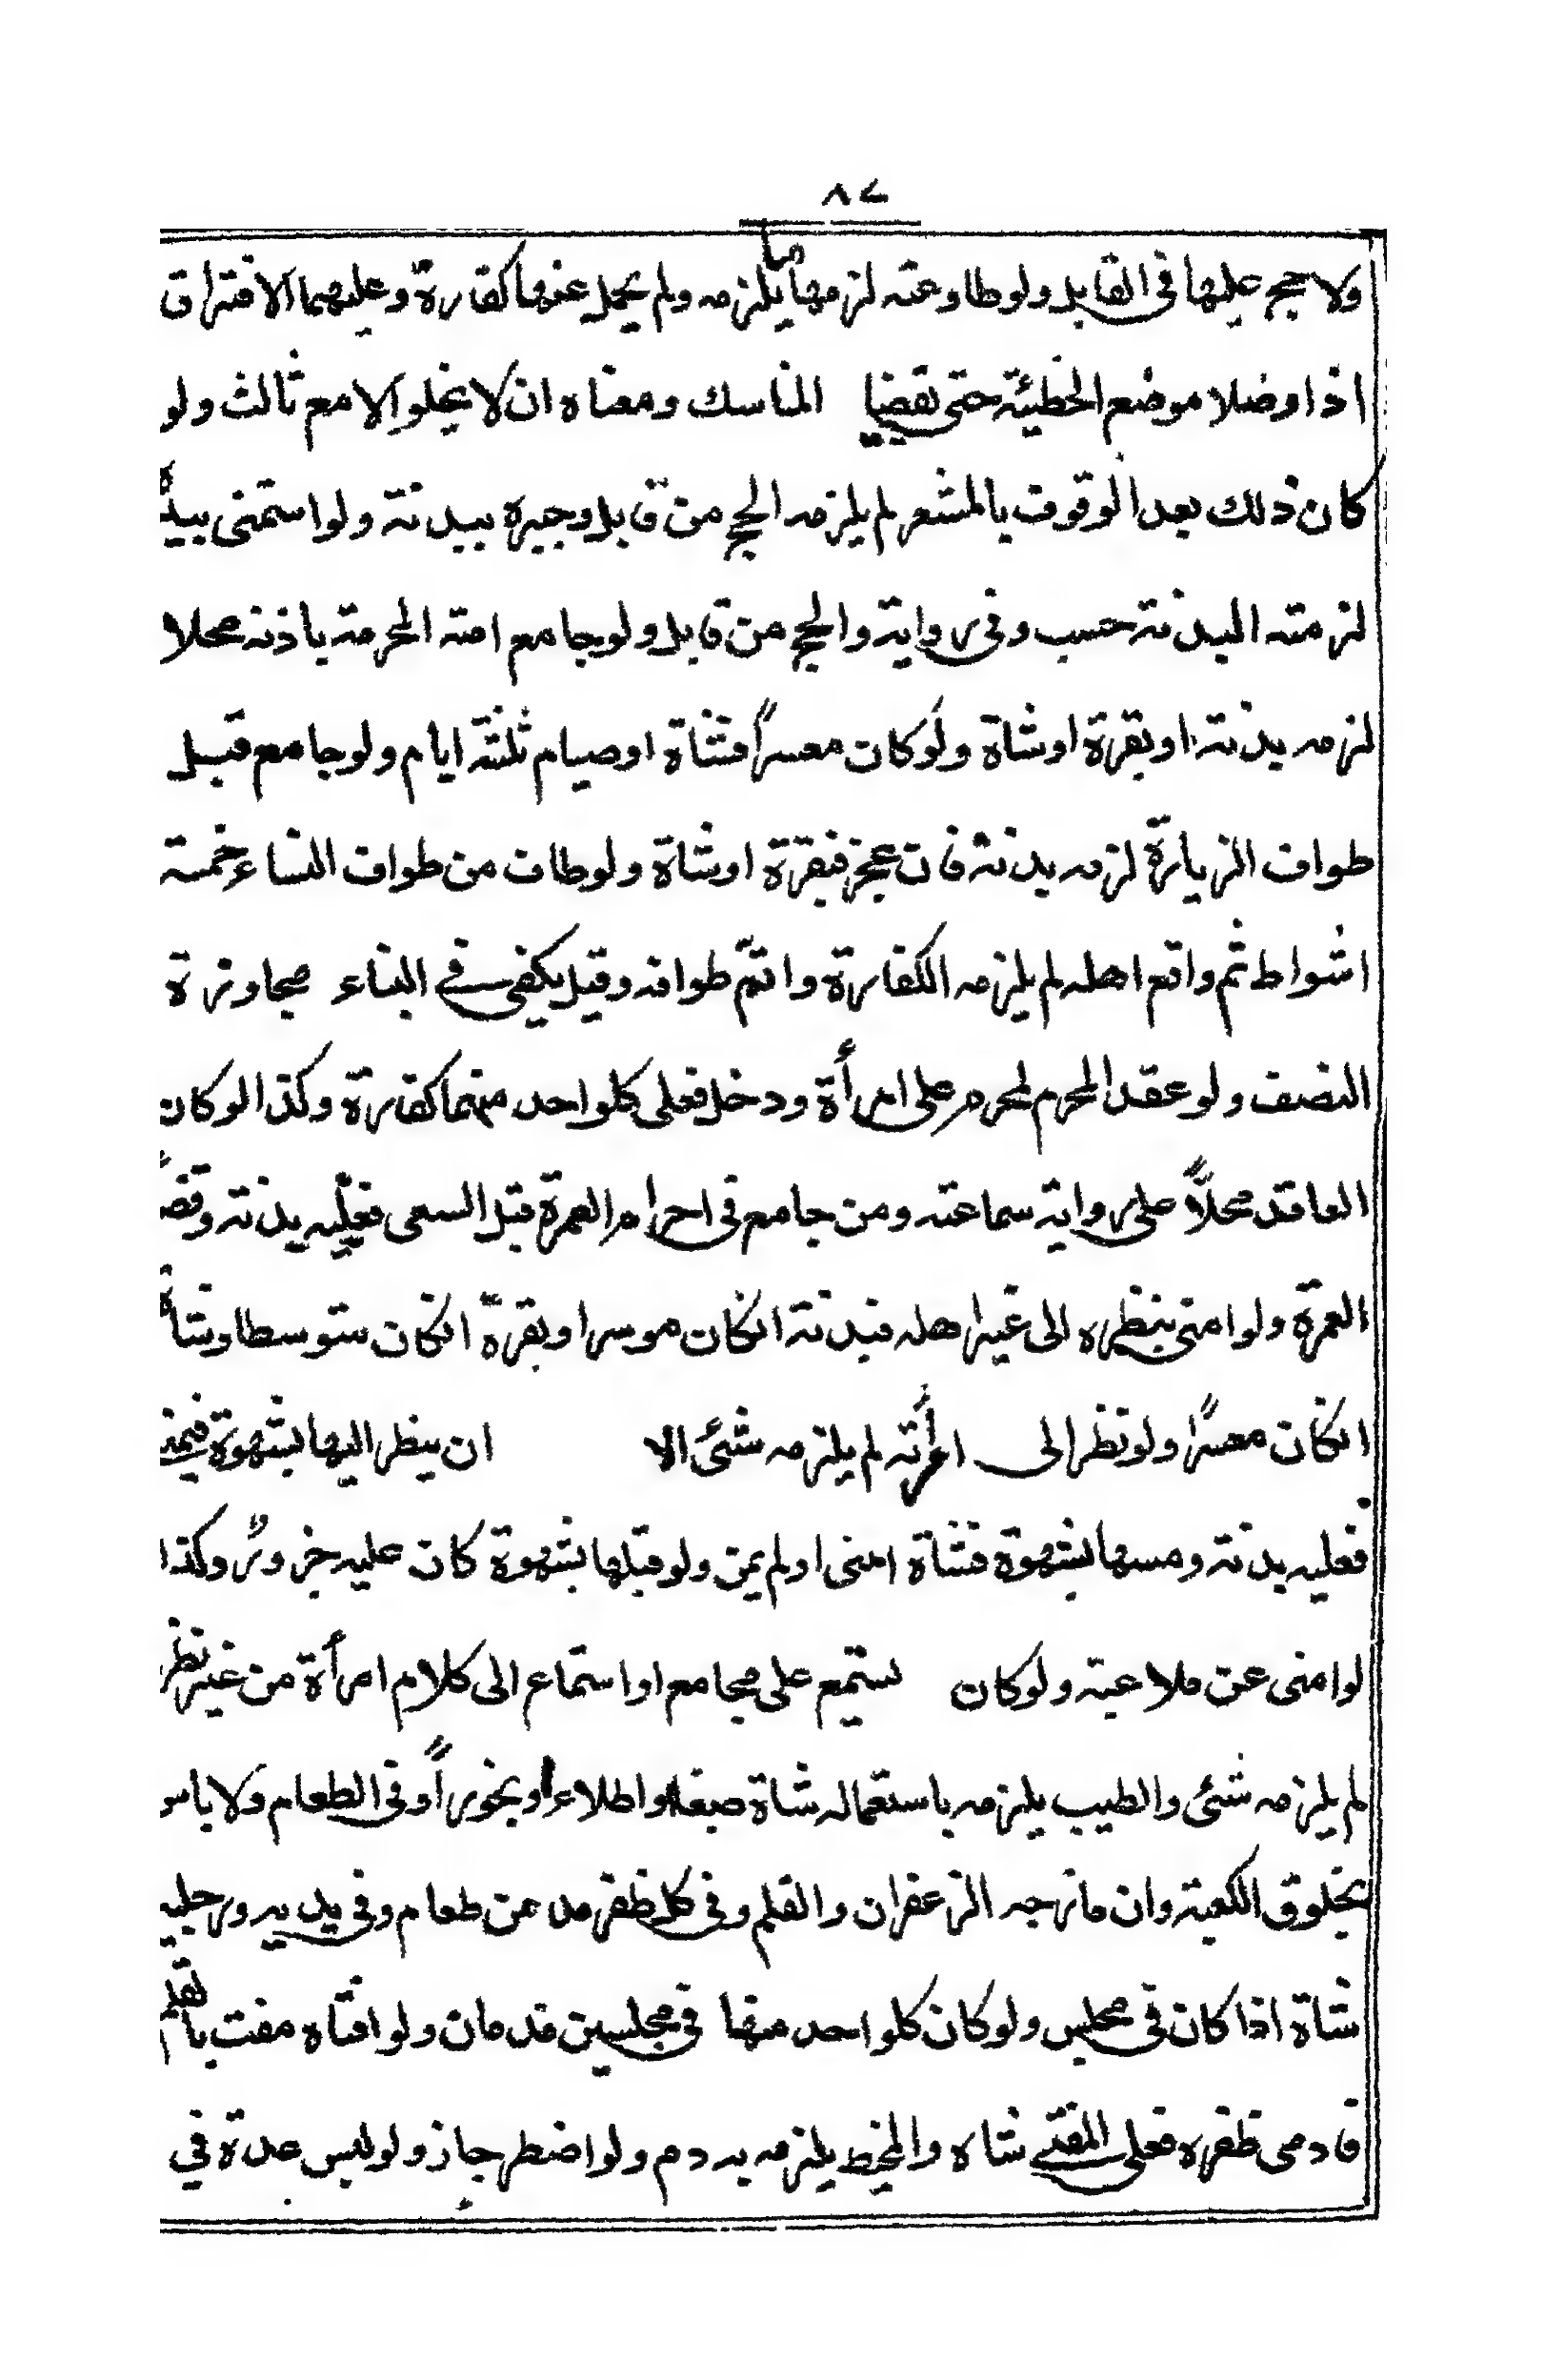 ٨٧
ولا حج عليها فى القابل ولو طاوعته لزمها ما يلزمه ولم يحمل عنها كفارة وعليهما الافتراق
اذا وصلا موضع الخطيئة حتى يقضيا المناسك ومعناه ان لا يخلوا الا مع ثالث ولو
كان ذلك بعد الوقوف بالمشعر لم يلزمه الحج من قابل وجبره ببدنة ولو استمنى بيده
لزمته البدنة حسب وفى رواية والحج من قابل ولو جامع امته المحرمة باذنه محلا
لزمه بدنة او بقرة او شاة ولو كان معسراً فشاة او صيام ثلثة ايام ولو جامع قبل
طواف الزيارة لزمه بدنة فان عجز فبقرة او شاة ولو طاف من طواف النساء خمسة
اشواط ثم واقع اهله لم يلزمه الكفارة واتمّ طوافه وقيل يكفى فى البناء مجاوزة
النصف ولو عقد المحرم لمحرم على امرأة ودخل فعلى كلواحد منهما كفارة وكذا لو كان
العاقد محلاً على رواية سماعة ومن جامع فى احرام العمرة قبل السعى فعليه بدنة وقضاء
العمرة ولو امنى بنظره الى غير اهله فبدنة انكان موسرا او بقرة انكان متوسطا وشاة
انكان معسراً ولو نظر الى امرأته لم يلزمه شئ الا ان ينظر اليها بشهوة فيمنى
فعليه بدنة ومسها بشهوة فشاة امنى او لم يمن ولو قبلها بشهوة كان عليه جزورٌ وكذا
لو امنى عن ملاعبة ولو كان يستمع على مجامع او استماع الى كلام امرأة من غير نظر
لم يلزمه شئ والطيب يلزمه باستعماله شاة صبغا واطلاء او بخوراً وفى الطعام ولا باس
بخلوق الكعبة وان مازجه الزعفران والقلم وفى كل ظفر مد من طعام وفى يديه ورجليه
شاة اذا كان فى مجلس ولو كان كلواحد منها فى مجلسين فدمان ولو افتاه مفت بالقلم
فادمى ظفره فعلى المفتى شاه والمخيط يلزمه به دم ولو اضطر جاز ولو لبس عدة في